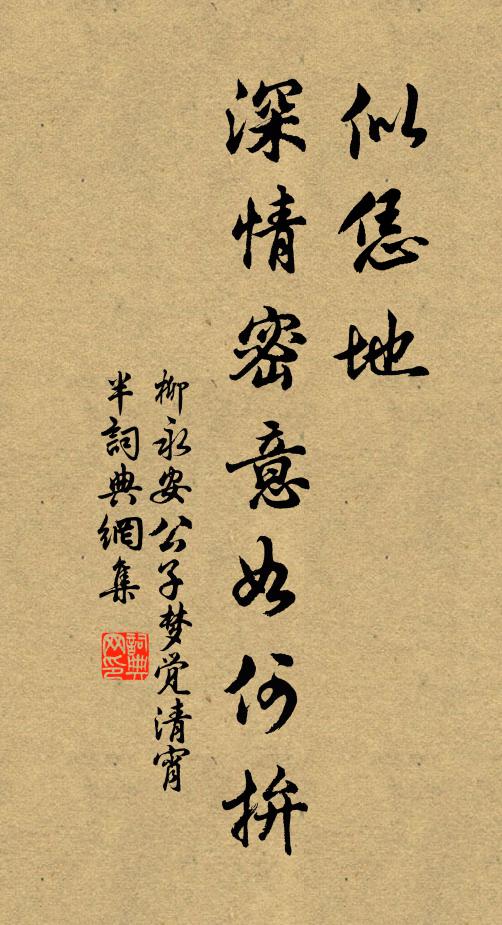 似恁地
深情密意如何拚
柳永安公子梦觉清宵
半詞典網集
詞典网印